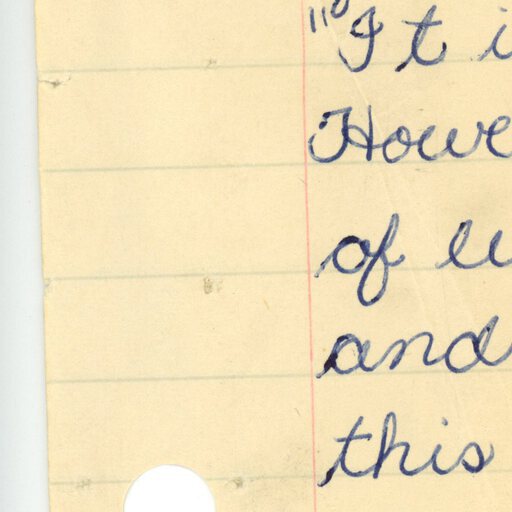 "It i
Howe
of
and
this